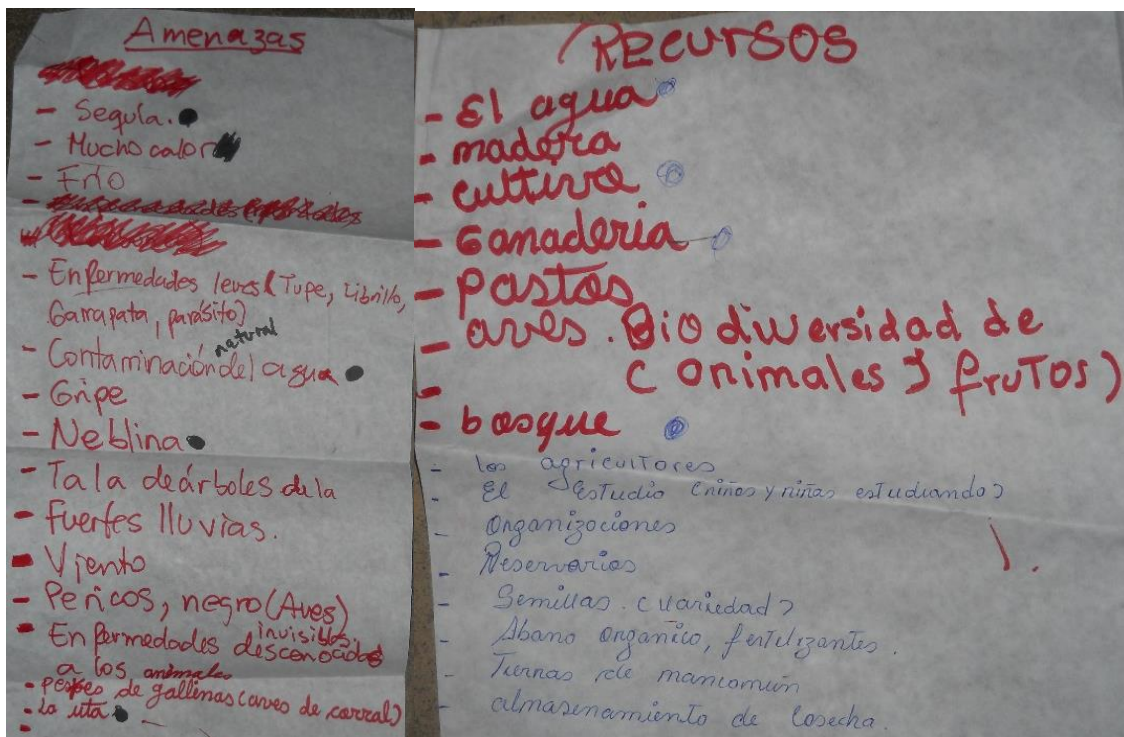 Amenazas
- Sequía.
- Mucho calor
- Frío
- Enfermedades leves (Tupe, Librillo,
Garrapata, parásito)
- Contaminación natural del agua
- Gripe
- Neblina
- Tala de árboles de la
- Fuertes lluvias.
- Viento
- Pericos, negro (Aves)
- Enfermedades invisibles desconocidas
a los animales
- pestes de gallinas (aves de corral)
- la uta
RECURSOS
- El agua
- madera
- cultivo
- Ganaderia
- Pastos
- aves. Biodiversidad de
(animales y fruTos)
- bosque
- los agricultores
- El Estudio (niños y niñas estudiando)
- Organizaciones
- Reservorios
- Semillas (variedad)
- Abano organico, fertilizantes.
- Tierras de mancomún
- almasenamiento de cosecha.